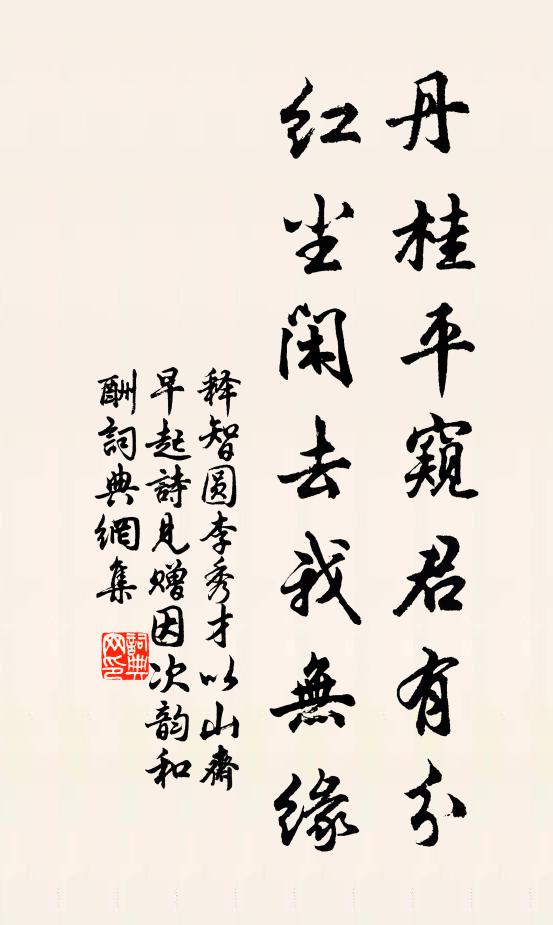 丹桂平窺君有分
红尘闲去我無缘
释智圆李秀才以山齋
早起詩見赠因次韵和
酬詞典網集
詞典網印